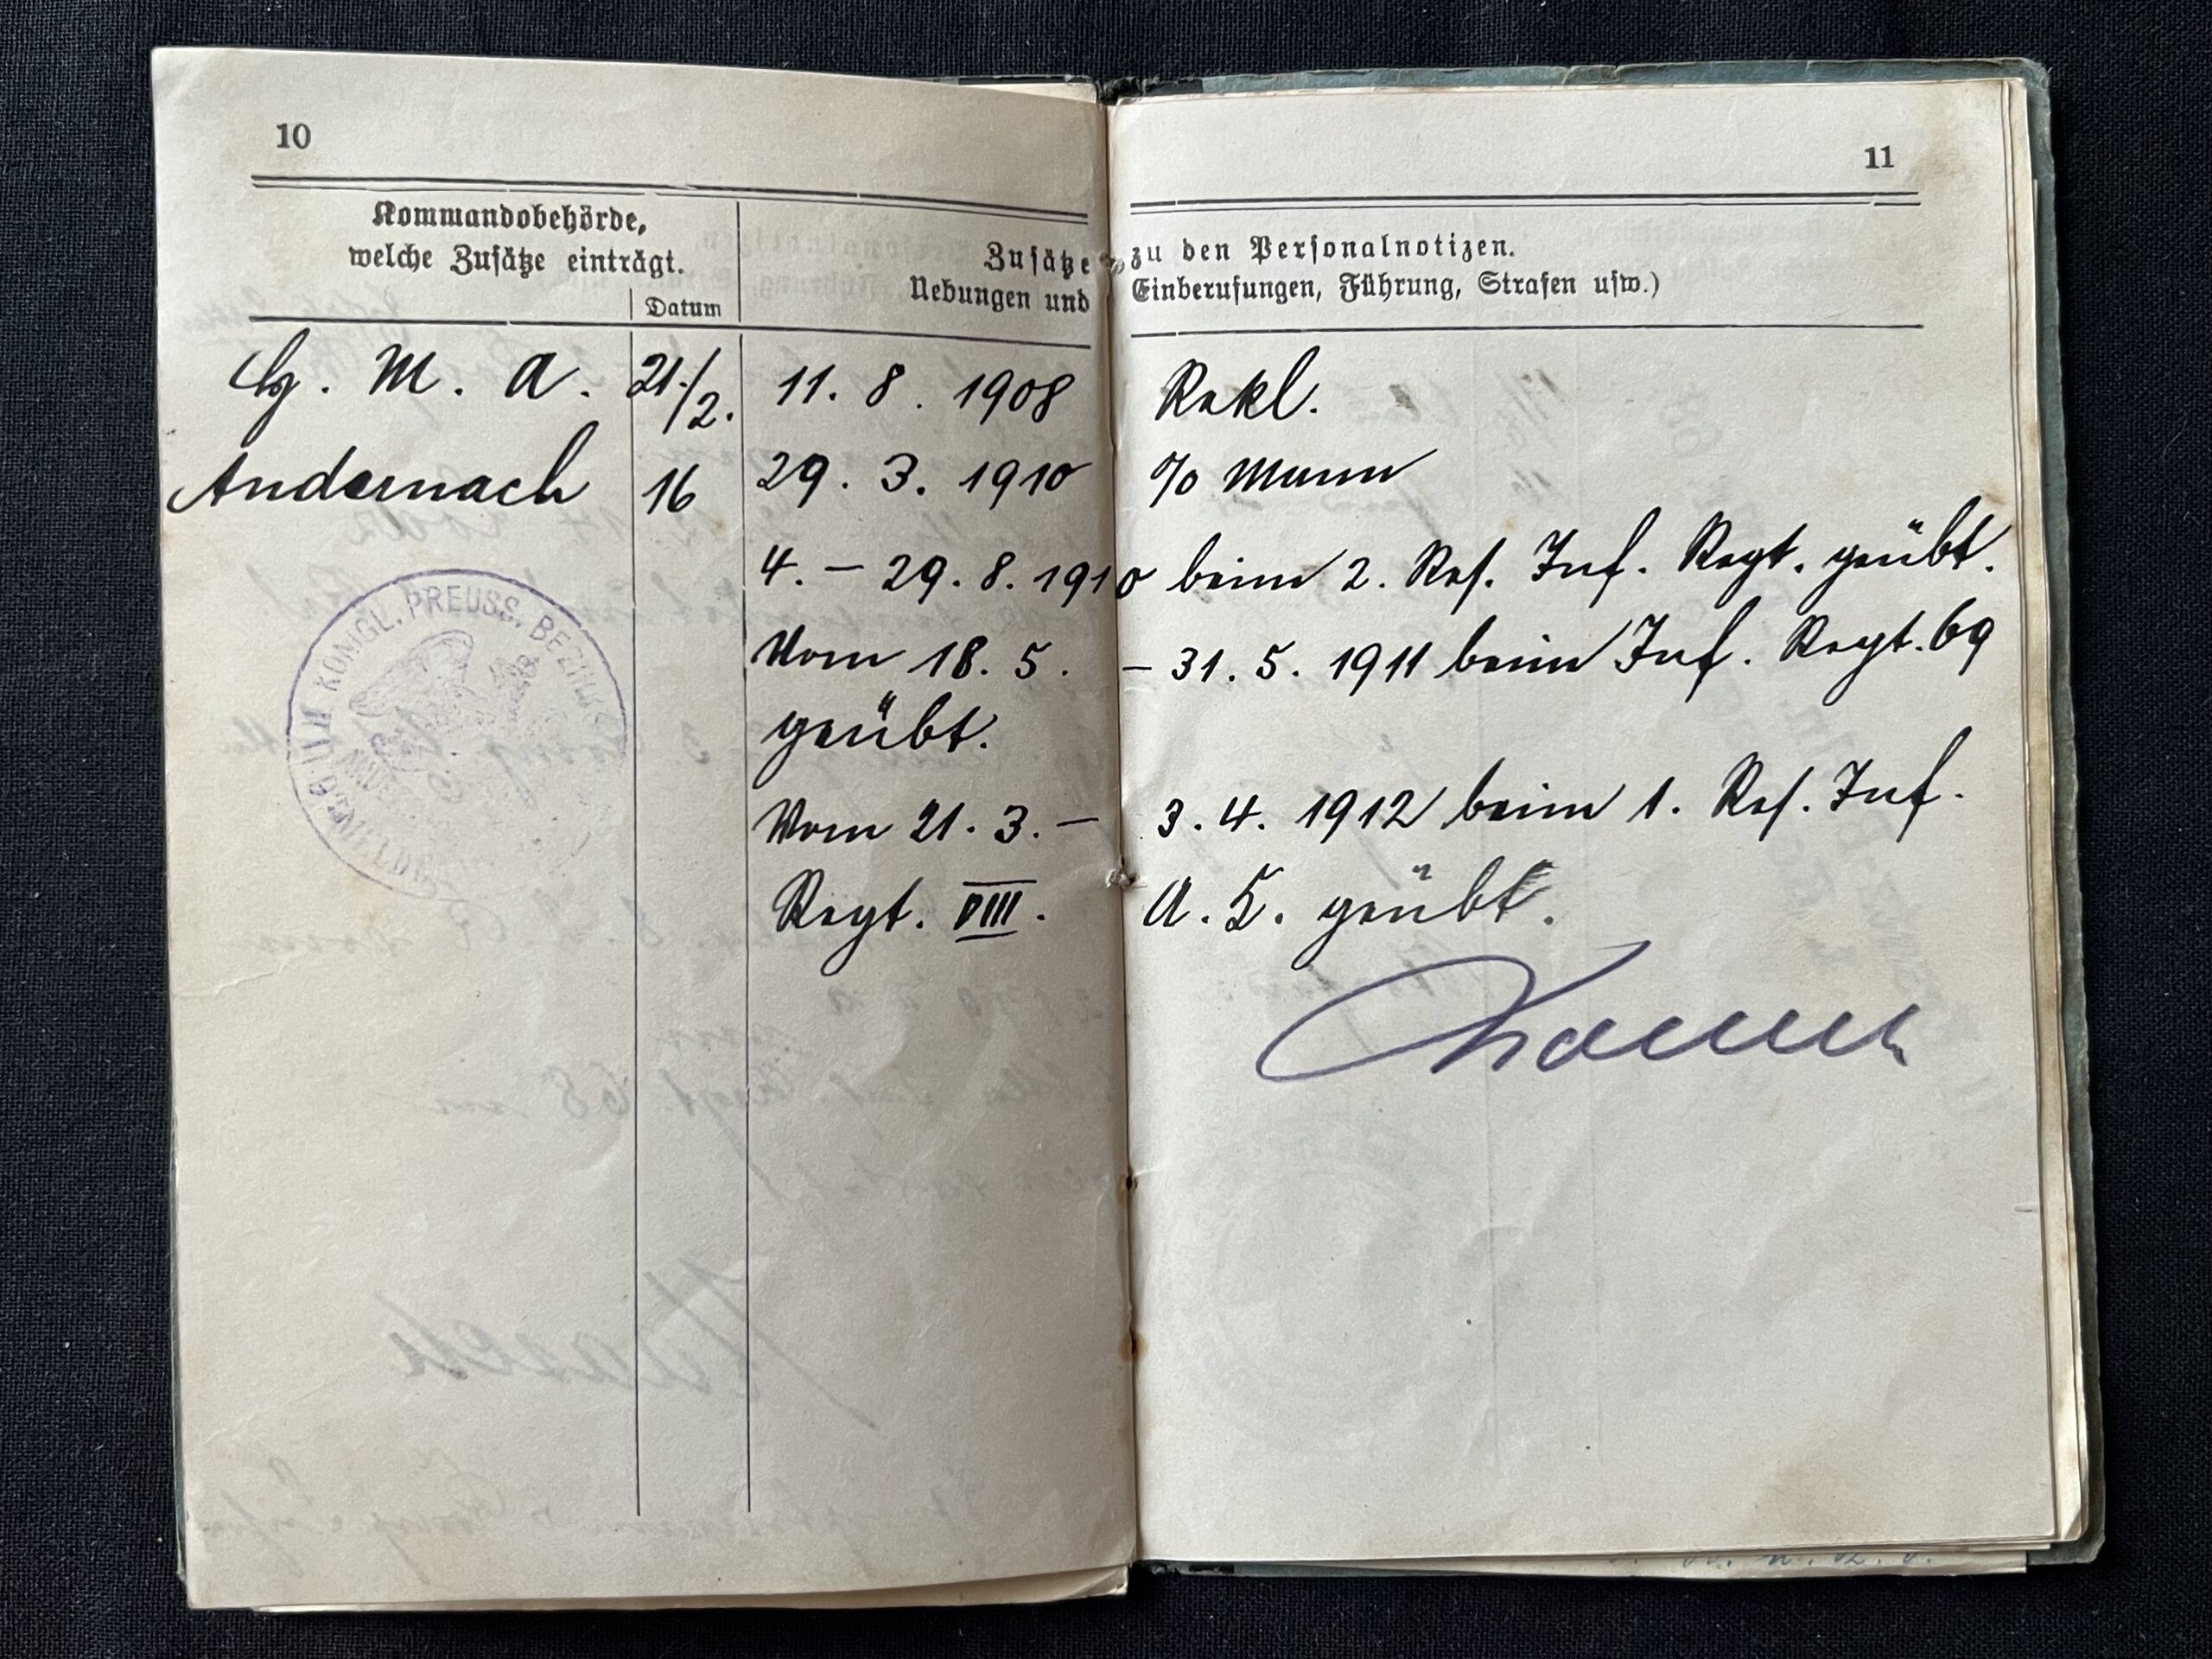 10
11
Kommandobehörde,
welche Zusätze einträgt.
Datum
Zusätze zu den Personalnotizen.
Uebungen und Einberufungen, Führung, Strafen usw.)
M. A. 21./2. 11. 8. 1908 Rekl.
Andernach 16 29. 3. 1910 Mann
4. – 29. 8. 1910 beim 2. Res. Inf. Regt. geübt.
Vom 18. 5. – 31. 5. 1911 beim Inf. Regt. 69
geübt.
Vom 21. 3. – 3. 4. 1912 beim 1. Res. Inf.
Regt. VIII. A. K. geübt.
KÖNGL. PREUSS.